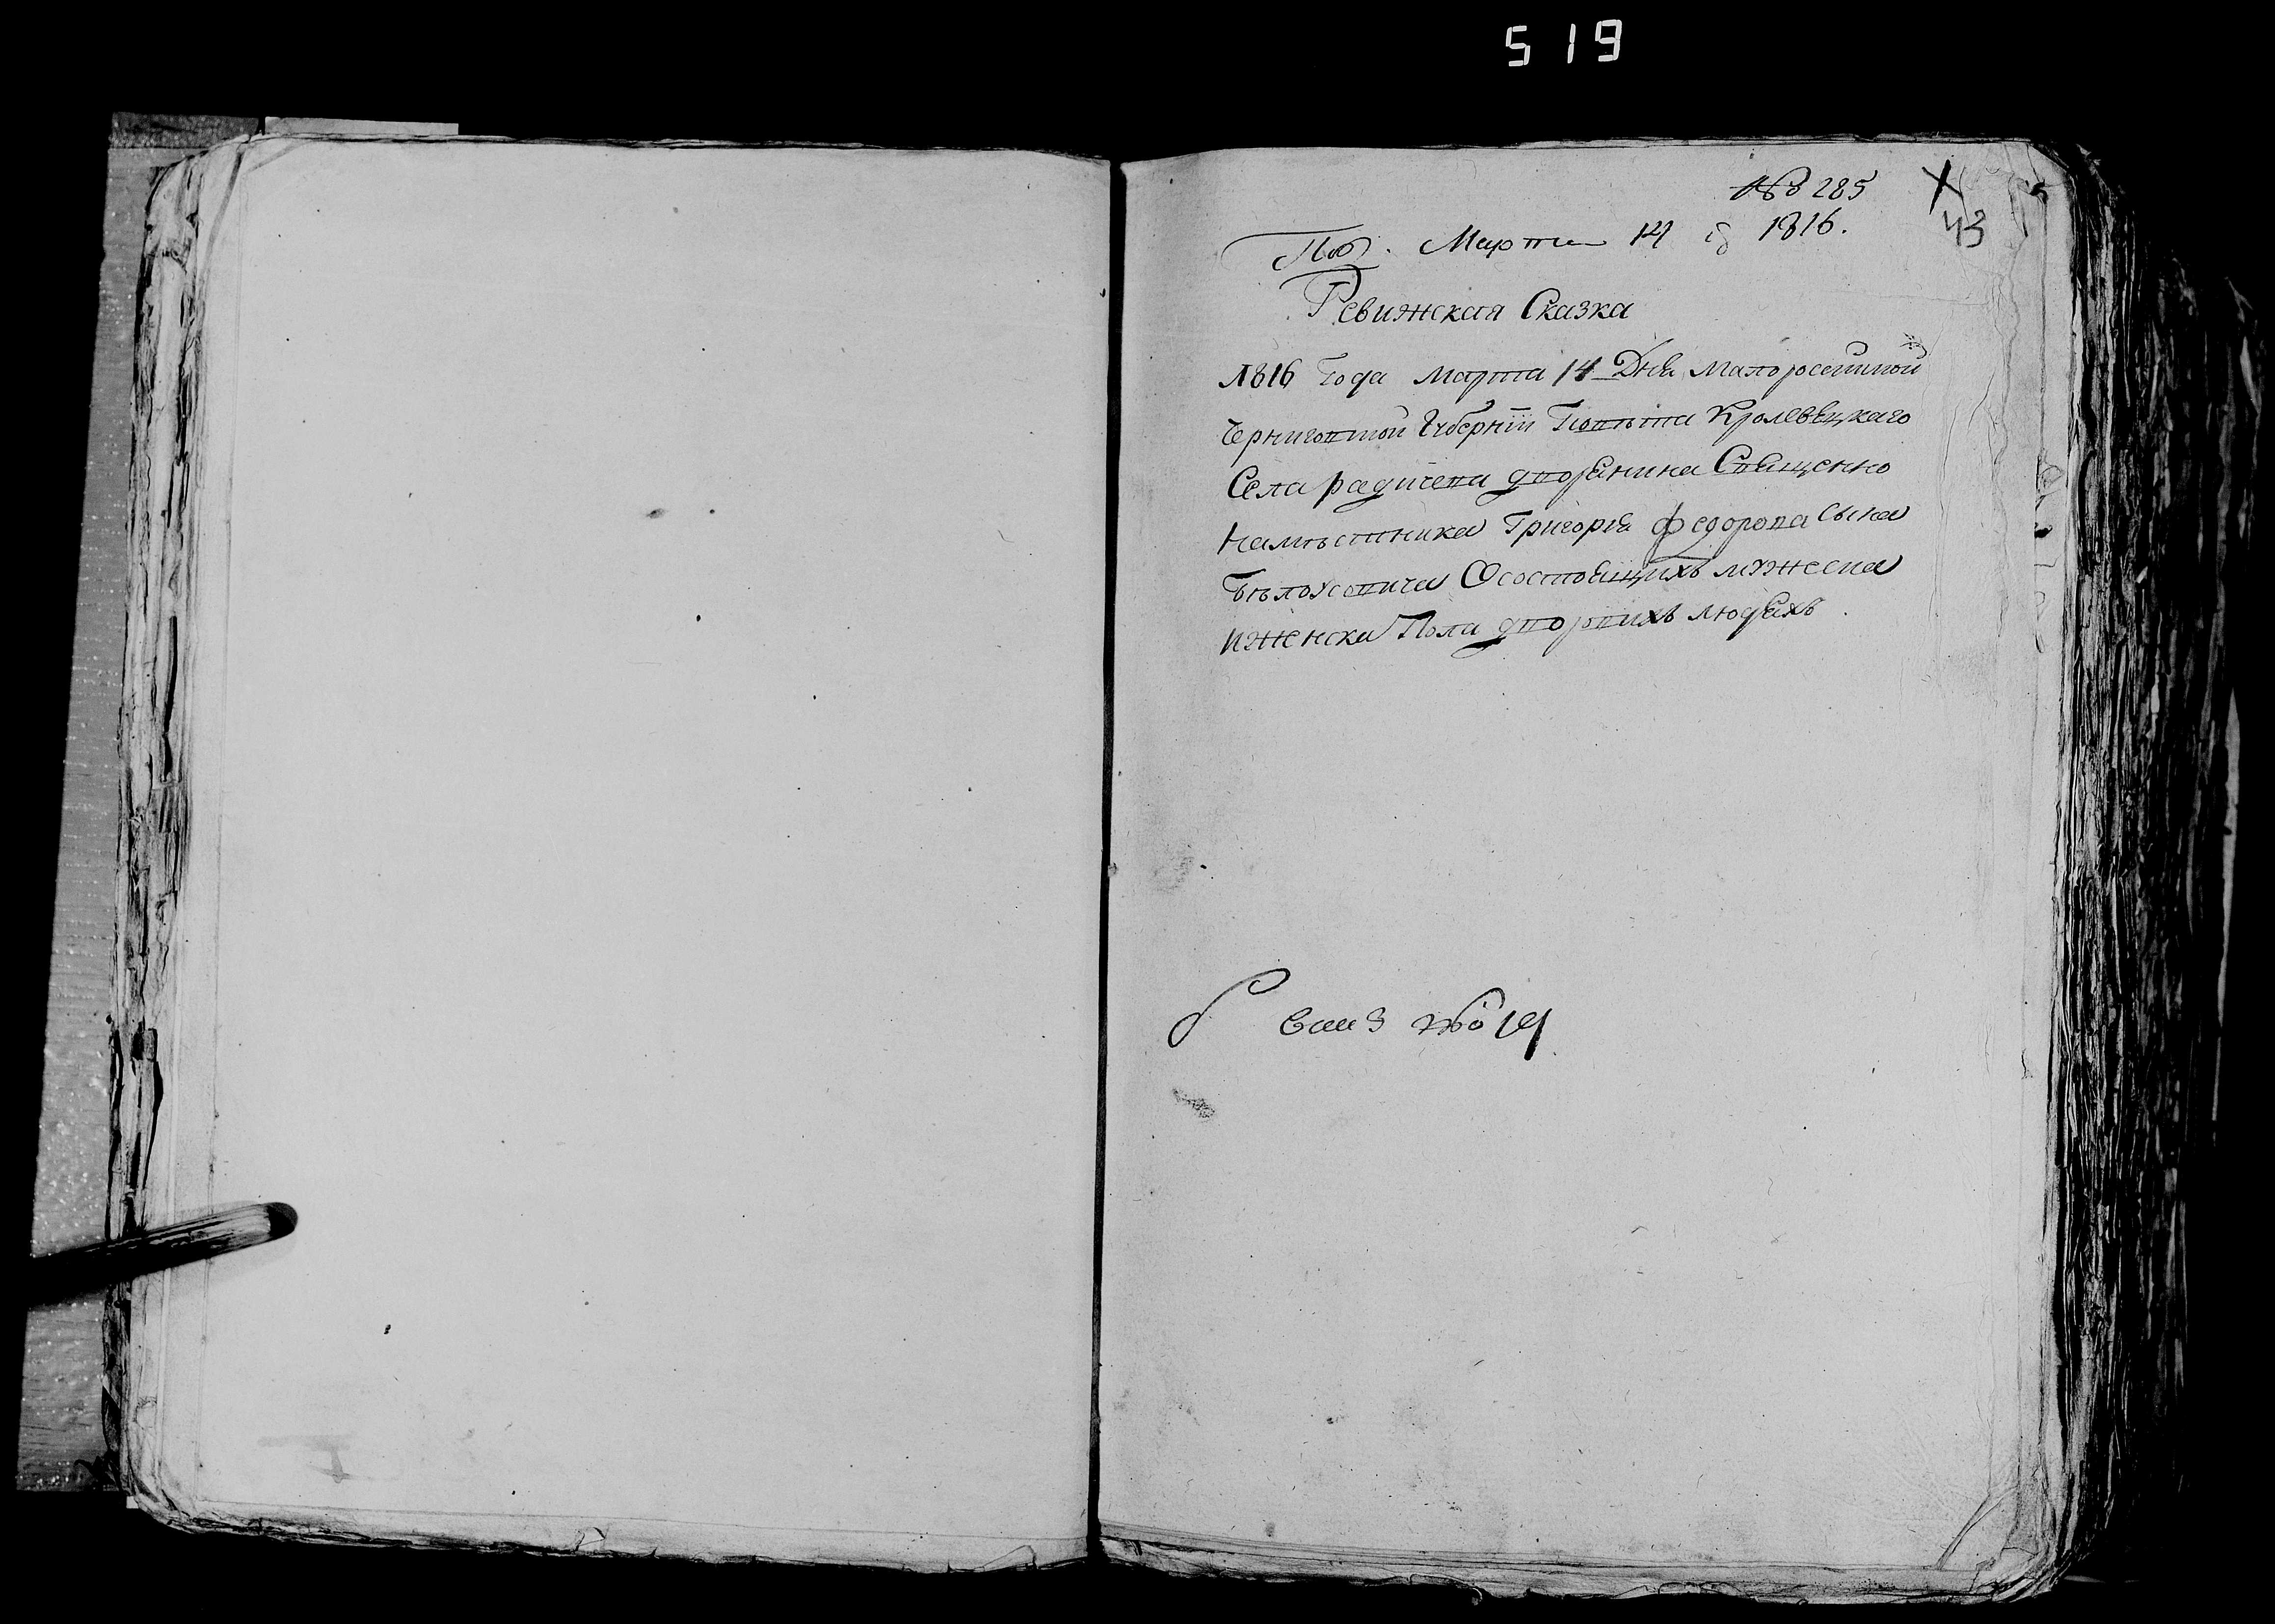 519
№ 285
43
Под. Марта 14 д 1816.
Ревижская Сказка
1816 Года Марта 14 Дня Малоросейской
Черниговской Губернїи Повѣта Кролевецкаго
Села радичева дворянина Священно
намѣстника Григория Федорова сына
Бѣлоусовича О состоящихъ мужеска
и женска Пола дворвихъ людяхъ
№ 14